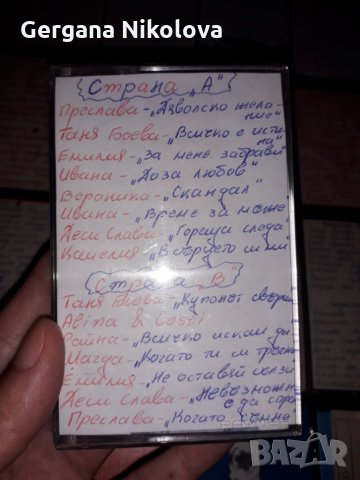 Gergana Nikolova
Страна „А"
Преслава-„Дяволско жела-
ние"
Таня Боева-„Всичко е исти-
на"
Емилия-„За мене забрави"
Ивана-„Доза любов"
Вероника-„Скандал"
Ивана-„Време за мъже
Деси Слава-„Гореща следа"
Камелия-„В сърцето ми
Страна „В"
Таня Боева-„Купонът свърши
Alina &
Райна-„Всичко искам да
Магда-„Когато ти си тръгна
Емилия-„Не оставяй сълзи
Деси Слава-„Невъзможно
е да спре
Преслава-„Когато съмне
BAZAR